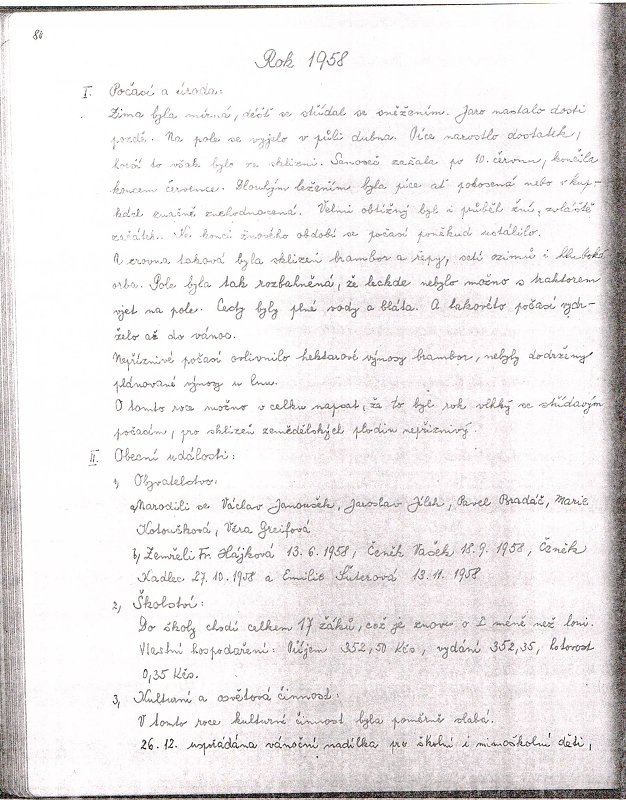 84
Rok 1958
I. Počasí a úroda:
Zima byla mírná, déšť se střídal se sněžením. Jaro nastalo dosti
pozdě. Na pole se vyjelo v půli dubna. Píce narostlo dostatek,
horší to však bylo se sklizní. Senoseč začala po 10. červnu, končila
koncem července. Dlouhým ležením byla píce ať pokosená nebo v kup-
kách značně znehodnocená. Velmi obtížný byl i průběh žní, zvláště
začátek. Ke konci žňového období se počasí poněkud ustálilo.
A zrovna taková byla sklizeň brambor a řepy, setí ozimů i hluboká
orba. Pole byla tak rozbahněná, že leckde nebylo možno s traktorem
vjet na pole. Cesty byly plné vody a bláta. A takovéto počasí vydr-
želo až do vánoc.
Nepříznivé počasí ovlivnilo hektarové výnosy brambor, nebyly dodrženy
plánované výnosy u lnu.
O tomto roce možno v celku napsat, že to byl rok vlhký se střídavým
počasím, pro sklizeň zemědělských plodin nepříznivý.
II. Obecní události:
1, Obyvatelstvo:
a, Narodili se Václav Janoušek, Jaroslav Jílek, Pavel Bradáč, Marie
Kotoušková, Věra Greifová
b, Zemřeli Fr. Hájková 13.6.1958, Čeněk Vaček 18.9.1958, Čeněk
Kadlec 27.10.1958 a Emilie Šulerová 13.11.1958
2, Školství:
Do školy chodí celkem 17 žáků, což je znovu o 2 méně než loni.
Vlastní hospodaření: Příjem 352,50 Kčs, vydání 352,35, hotovost
0,35 Kčs.
3, Kulturní a osvětová činnost:
V tomto roce kulturní činnost byla poměrně slabá.
26.12. uspořádána vánoční nadílka pro školní i mimoškolní děti,